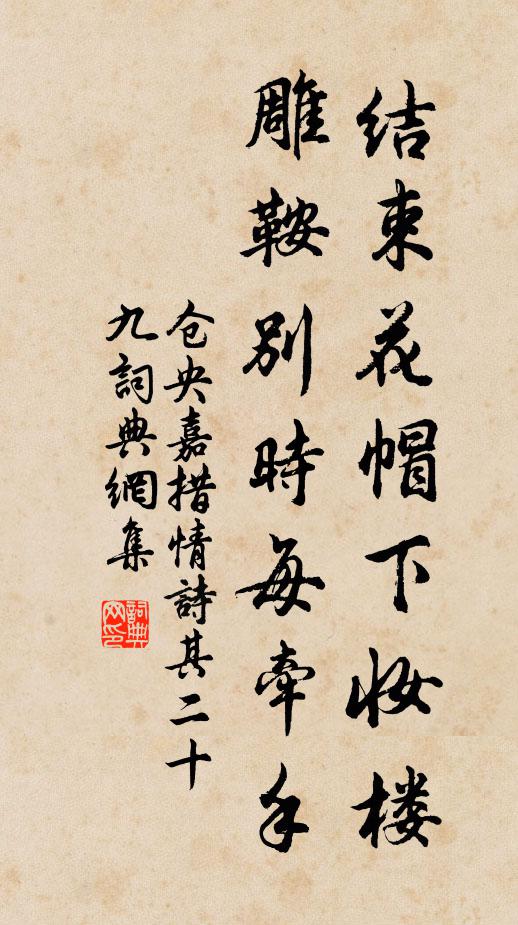 结束花帽下妆楼
雕鞍別時每牽手
仓央嘉措情詩其二十
九詞典網集
詞典网印